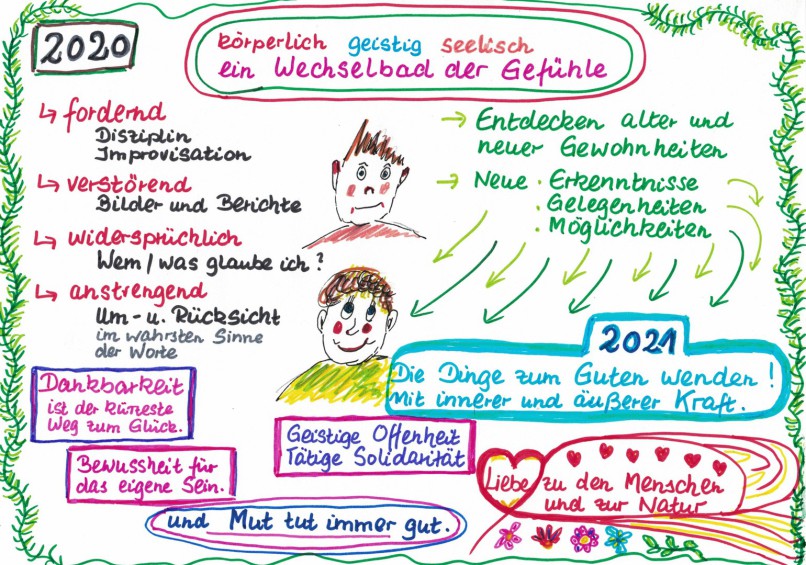 2020
körperlich geistig seelisch
ein Wechselbad der Gefühle
fordernd
Disziplin
Improvisation
verstörend
Bilder und Berichte
widersprüchlich
Wem / was glaube ich?
anstrengend
Um- u. Rücksicht
im wahrsten Sinne
der Worte
Entdecken alter und
neuer Gewohnheiten
Neue · Erkenntnisse
· Gelegenheiten
· Möglichkeiten
2021
Die Dinge zum Guten wenden!
Mit innerer und äußerer Kraft.
Dankbarkeit
ist der kürzeste
Weg zum Glück.
Bewussheit für
das eigene Sein.
Geistige Offenheit
Tätige Solidarität
Liebe zu den Menschen
und zur Natur
und Mut tut immer gut.